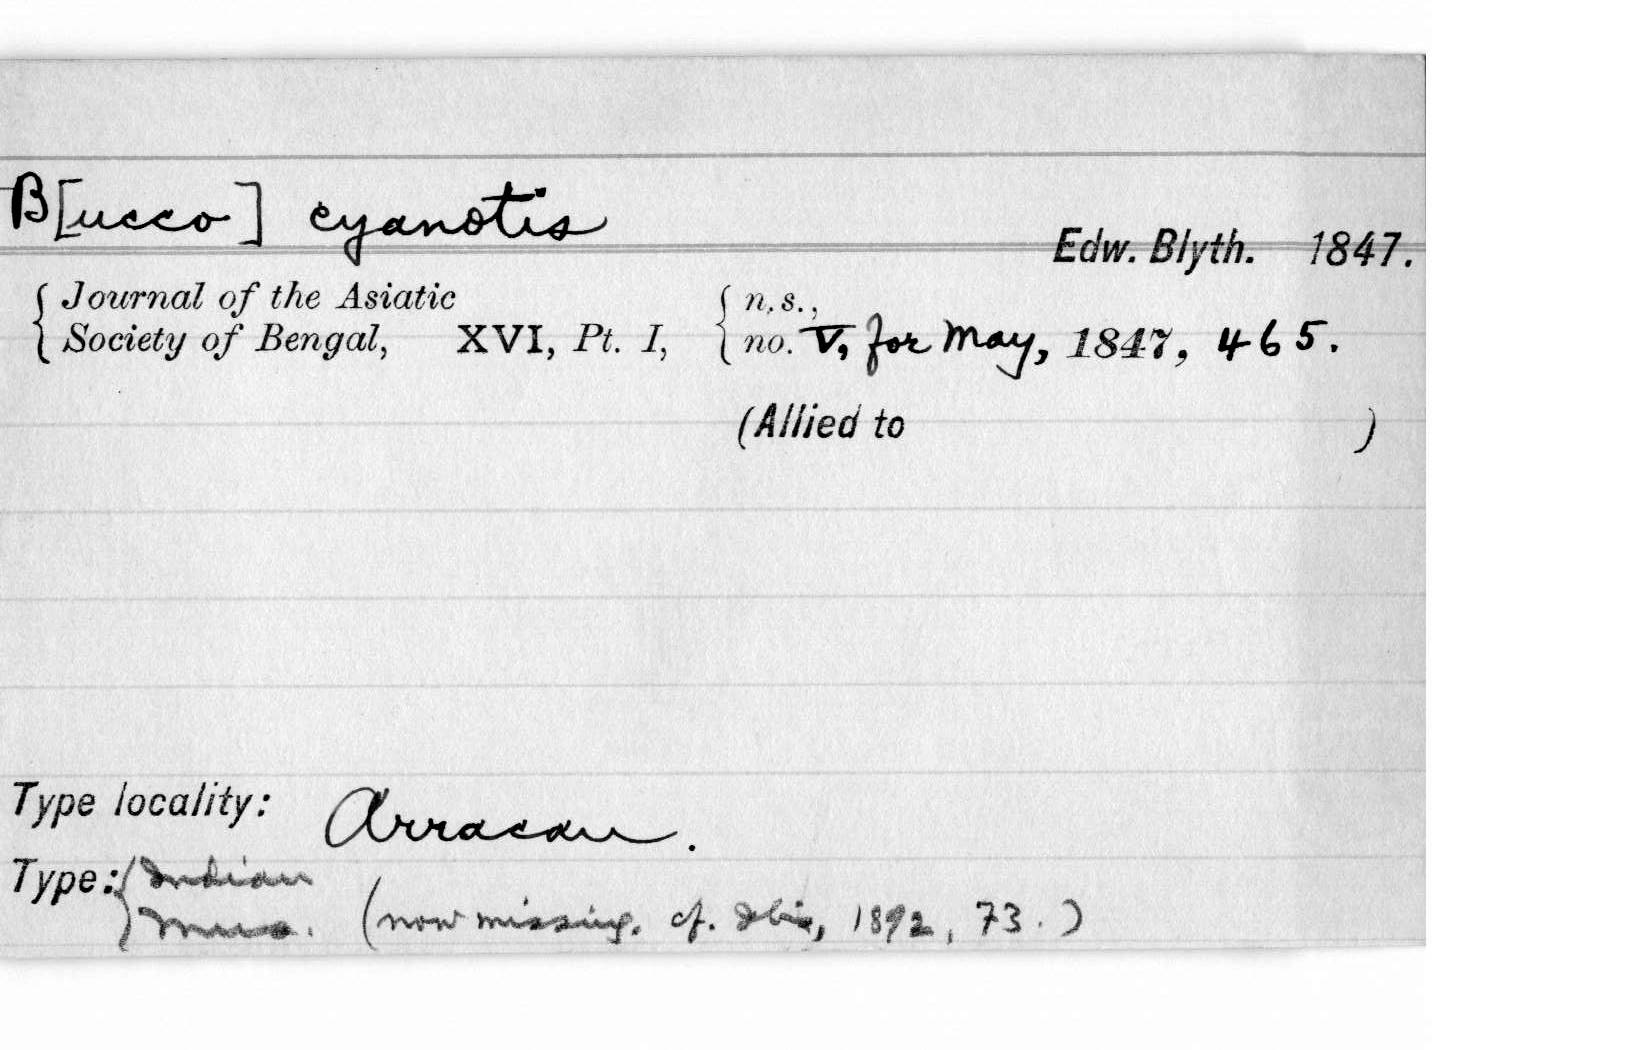 B[ucco] cyanotis
Edw. Blyth. 1847.
Journal of the Asiatic
Society of Bengal, XVI, Pt. I, { n.s., no. V, for May, 1847, 465.
(Allied to )
Type locality: Arracan.
Type: { Indian
Mus. (now missing. cf. Ibis, 1892, 73.)